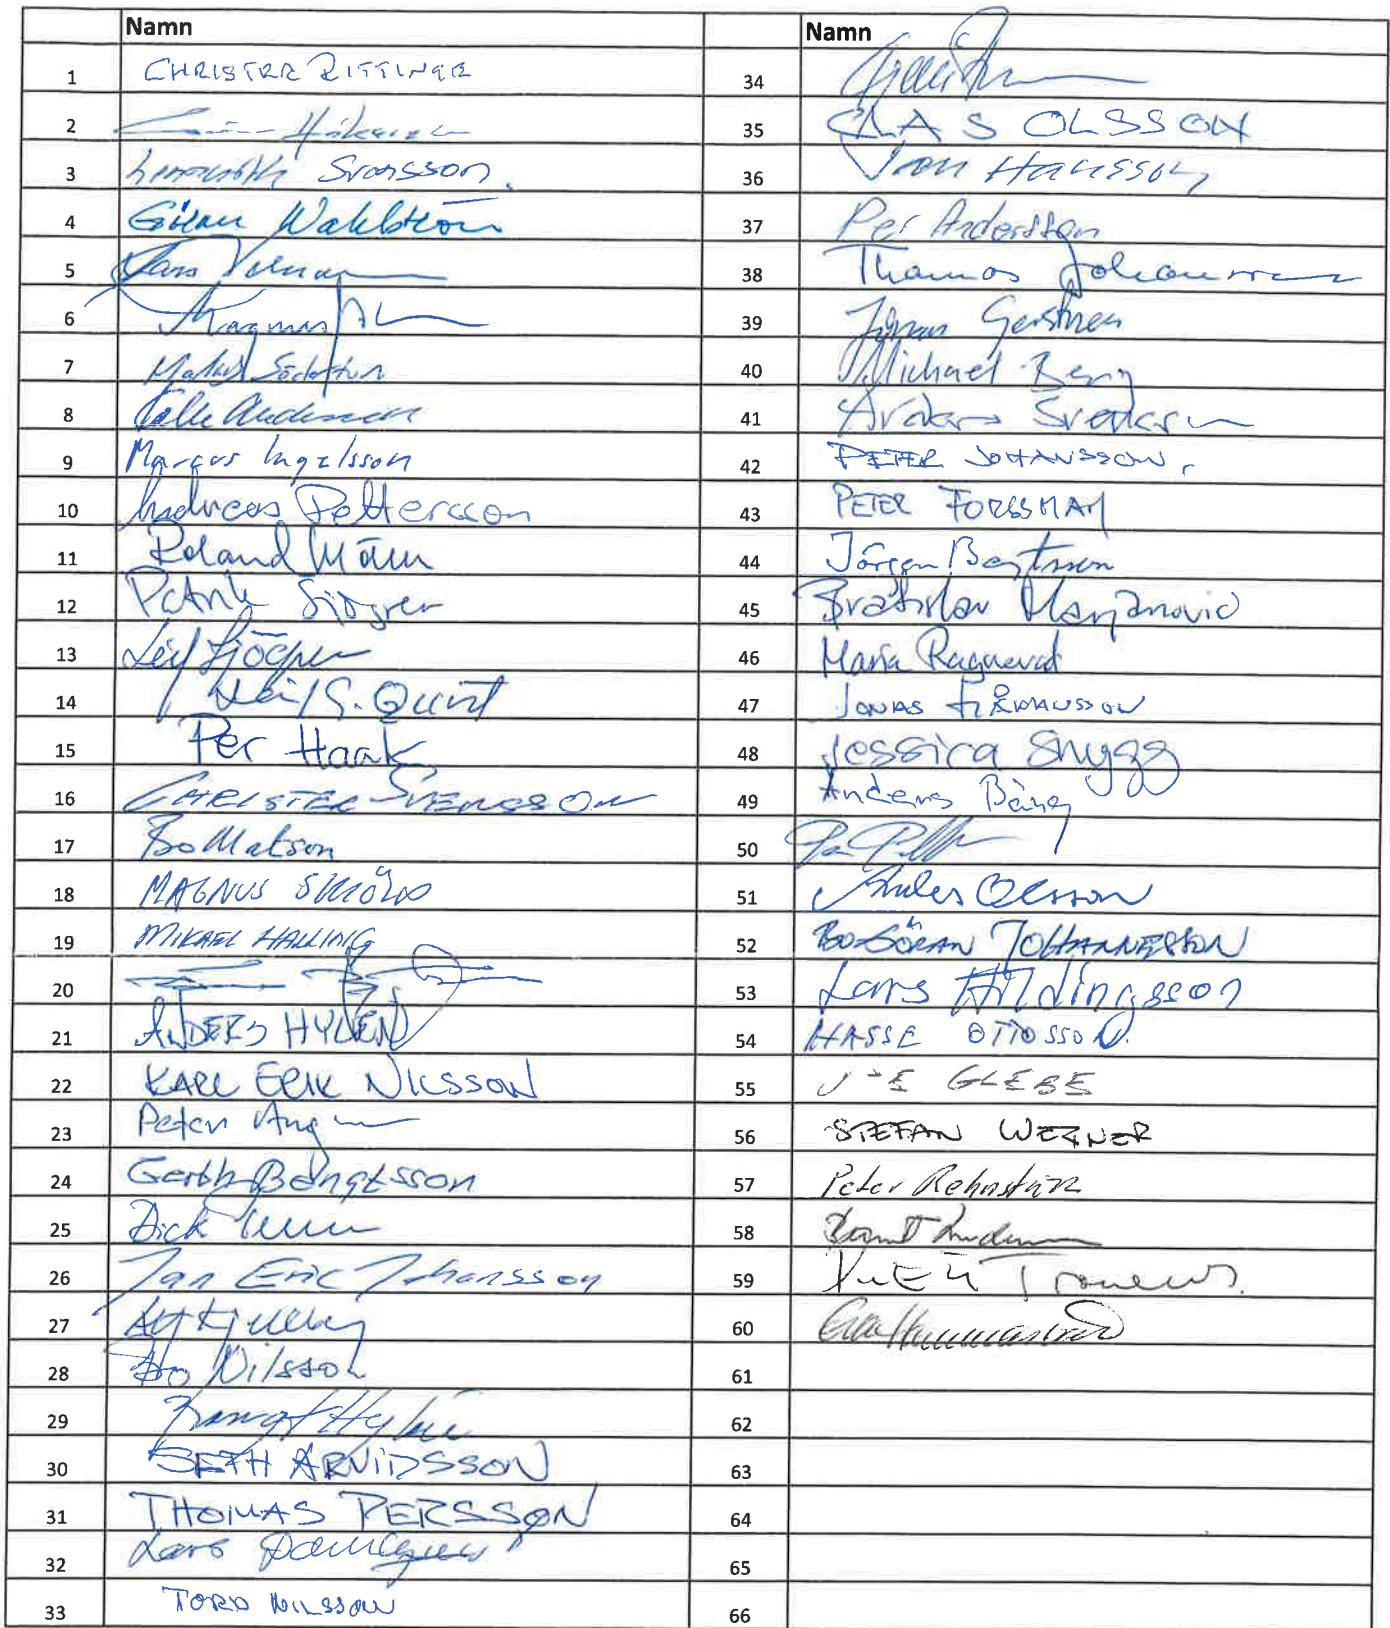 Namn
1 CHRISTER RITTINGE
2
3 Lennarth Svensson
4 Göran Wahlström
5 Lars
6 Magnus
7 Söderström
8 Kalle Andersson
9 Marcus Ingelsson
10 Andreas Pettersson
11 Roland Malm
12 Patrik Sjögren
13 Leif Sjögren
14 Leif G. Quist
15 Per Haak
16 CHRISTER SVENSSON
17 Bo Matson
18 MAGNUS SKIÖLD
19 MIKAEL HALLING
20
21 ANDERS HYLÉN
22 KARL ERIK NILSSON
23 Peter
24 Gerth Bengtsson
25 Dick
26 Jan Eric Johansson
27
28 Bo Nilsson
29 Bengt Hylén
30 SETH ARVIDSSON
31 THOMAS PERSSON
32 Lars
33 TORD NILSSON
Namn
34
35 CLAS OLSSON
36 Jan Hansson
37 Per Andersson
38 Thomas Johansson
39 Göran Gerstnen
40 Michael Berg
41 Anders Svensson
42 PETER JOHANSSON.
43 PETER FORSSMAN
44 Jörgen Bengtsson
45 Bratislav Marjanovic
46 Maria Ragnevad
47 JONAS HÅKANSSON
48 Jessica Snygg
49 Anders Bång
50
51 Anders Olsson
52 BO-GÖRAN JOHANNESSON
53 Lars Hildingsson
54 HASSE OTTOSSON.
55 J-E GLEBE
56 STEFAN WERNER
57 Peter Rehnström
58 Bernt
59
60 Hammarstrand
61
62
63
64
65
66